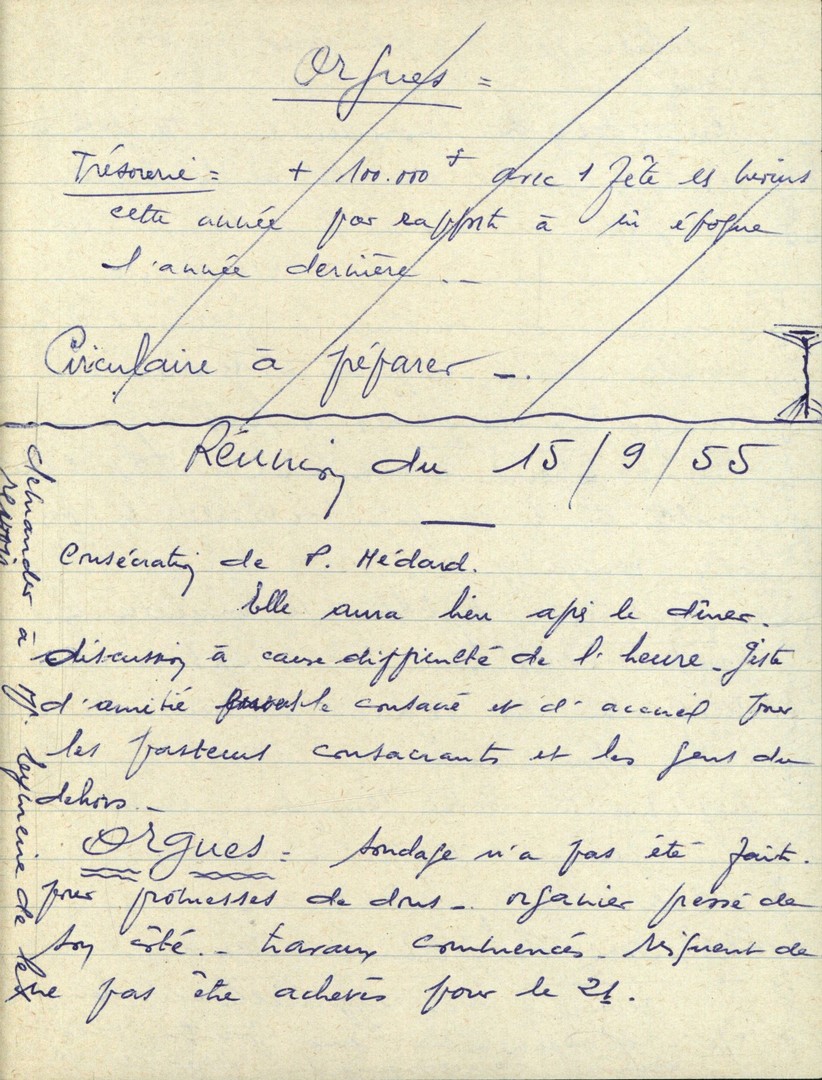 Orgues =
Trésorerie = + 100.000 f avec 1 fête en moins
cette année par rapport à
l'année dernière ..
Circulaire à préparer -.
Réunion du 15/9/55
Consécration de P. Médard.
Elle aura lieu après le dîner.
discussion à cause difficulté de l'heure - Geste
d'amitié le consacré et d'accueil pour
les pasteurs consacrants et les gens du
dehors -
Orgues = sondage n'a pas été fait.
pour promesses de dons - organier pressé de
son côté. - travaux commencés - risquent de
ne pas être achevés pour le 21.
demander à de
revoir